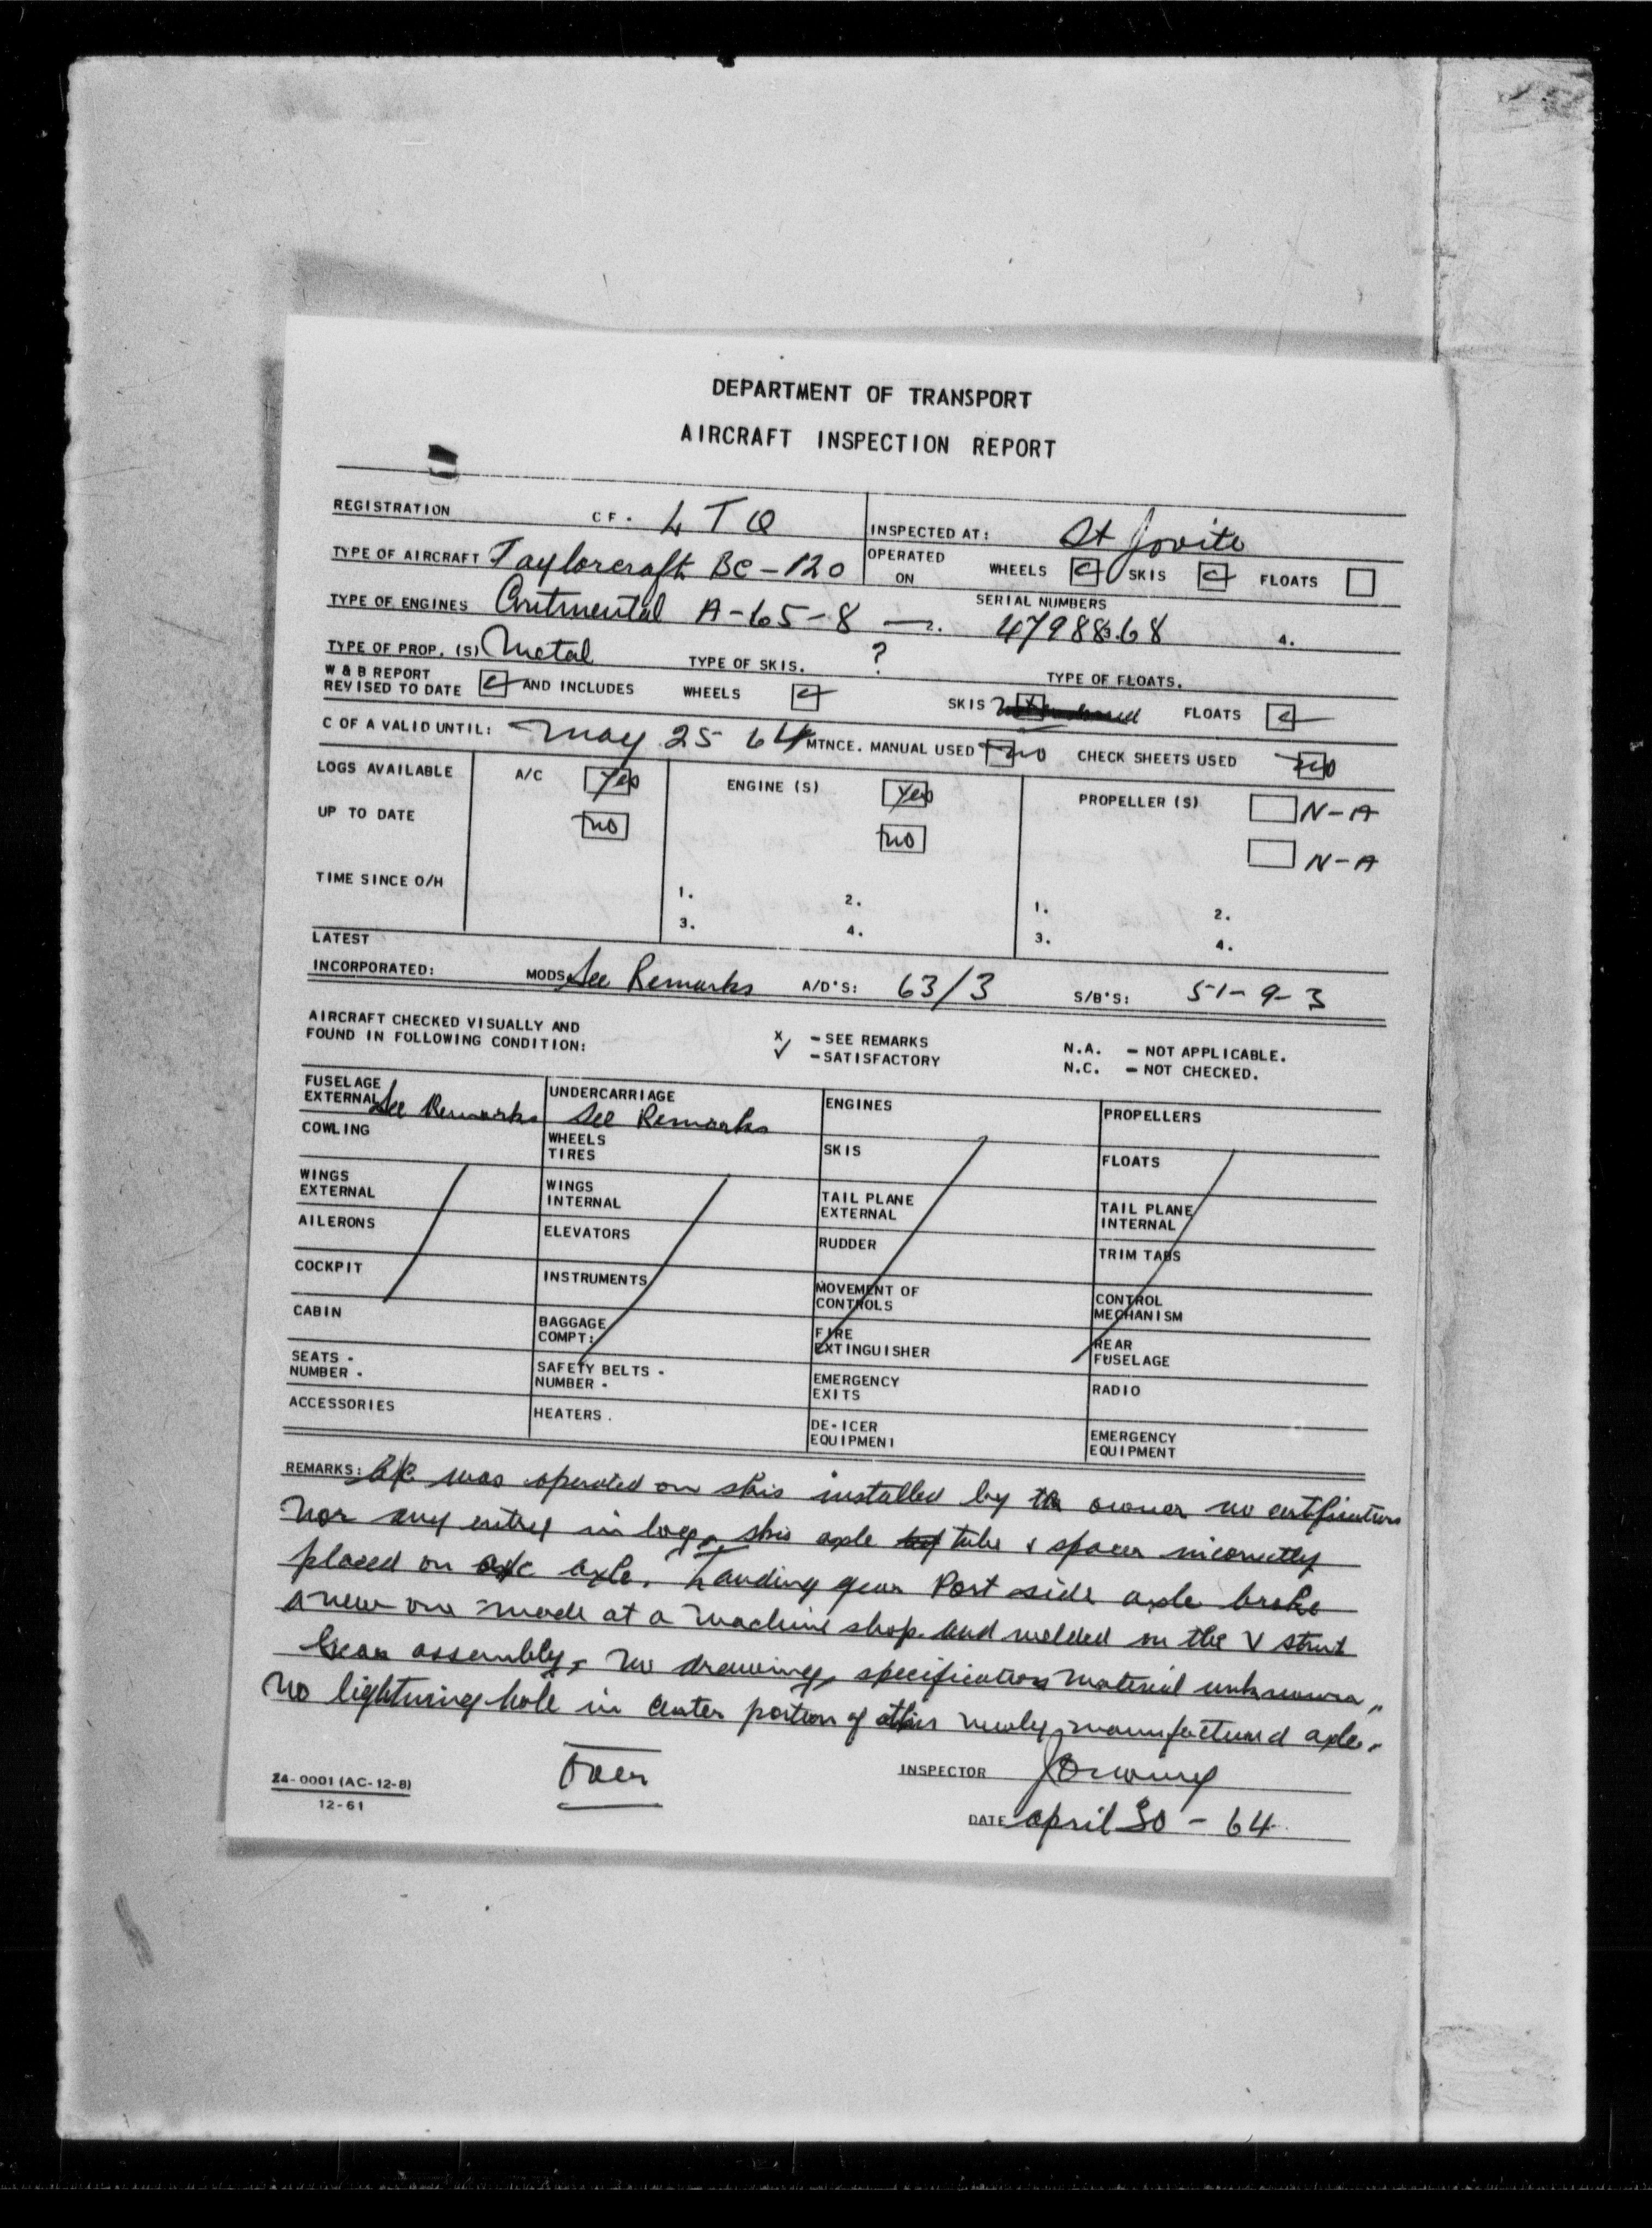 DEPARTMENT OF TRANSPORT
AIRCRAFT INSPECTION REPORT
REGISTRATION CF. LTQ INSPECTED AT: St Jovite
TYPE OF AIRCRAFT Taylorcraft BC-120 OPERATED ON WHEELS SKIS FLOATS
TYPE OF ENGINES Continental A-65-8 2. SERIAL NUMBERS 4798868 3. 4.
TYPE OF PROP. (S) Metal TYPE OF SKIS. ? TYPE OF FLOATS.
W & B REPORT
REVISED TO DATE AND INCLUDES WHEELS SKIS FLOATS
C OF A VALID UNTIL: May 25 64 MTNCE. MANUAL USED no CHECK SHEETS USED no
LOGS AVAILABLE A/C Yes ENGINE (S) Yes PROPELLER (S) N-A
UP TO DATE no no N-A
TIME SINCE O/H 1. 2. 1. 2.
3. 4. 3. 4.
LATEST
INCORPORATED: MODS See Remarks A/D'S: 63/3 S/B'S: 51-9-3
AIRCRAFT CHECKED VISUALLY AND
FOUND IN FOLLOWING CONDITION:
X - SEE REMARKS
✓ - SATISFACTORY
N.A. - NOT APPLICABLE.
N.C. - NOT CHECKED.
FUSELAGE EXTERNAL See Remarks UNDERCARRIAGE See Remarks ENGINES PROPELLERS
COWLING WHEELS TIRES SKIS FLOATS
WINGS EXTERNAL WINGS INTERNAL TAIL PLANE EXTERNAL TAIL PLANE INTERNAL
AILERONS ELEVATORS RUDDER TRIM TABS
COCKPIT INSTRUMENTS MOVEMENT OF CONTROLS CONTROL MECHANISM
CABIN BAGGAGE COMPT: FIRE EXTINGUISHER REAR FUSELAGE
SEATS - NUMBER - SAFETY BELTS - NUMBER - EMERGENCY EXITS RADIO
ACCESSORIES HEATERS. DE-ICER EQUIPMENT EMERGENCY EQUIPMENT
REMARKS: A/C was operated on skis installed by the owner no certification
nor any entry in log, skis axle tube & spacer incorrectly
placed on a/c axle. Landing gear Port side axle broke
a new one made at a machine shop and welded on the V strut
Gear assembly, no drawing, specification material unknown,
No lightning hole in center portion of this newly manufactured axle.
Over
INSPECTOR
24-0001 (AC-12-8)
12-61
DATE April 30 - 64